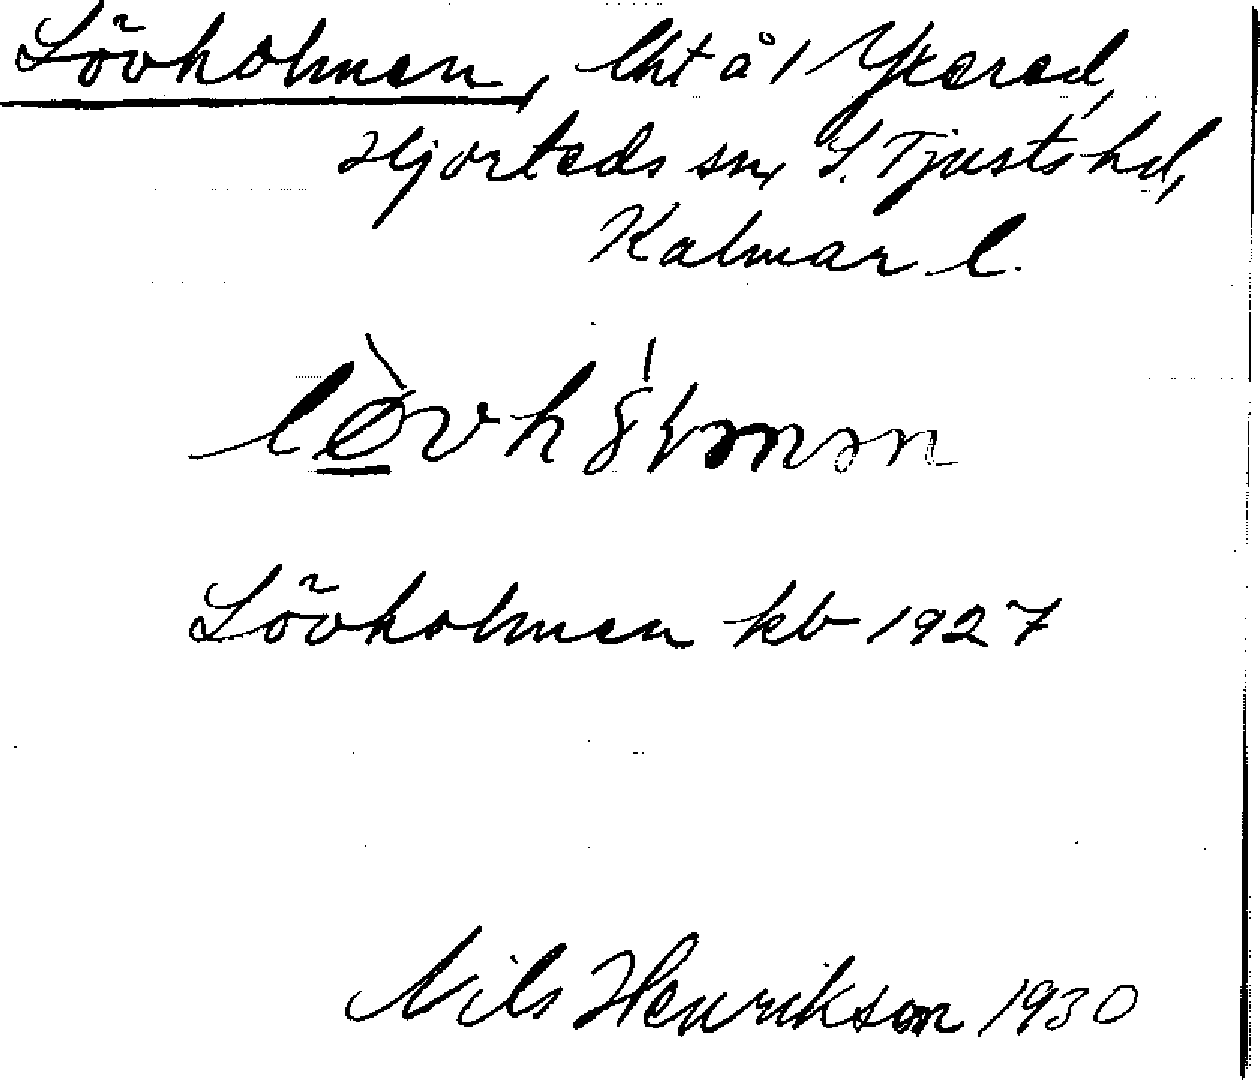 Lövholmen, lht å 1 Ykered,
Hjorteds sn, S. Tjusts hd,
Kalmar l.
Lövholmen kb 1927
Nils Henrikson 1930